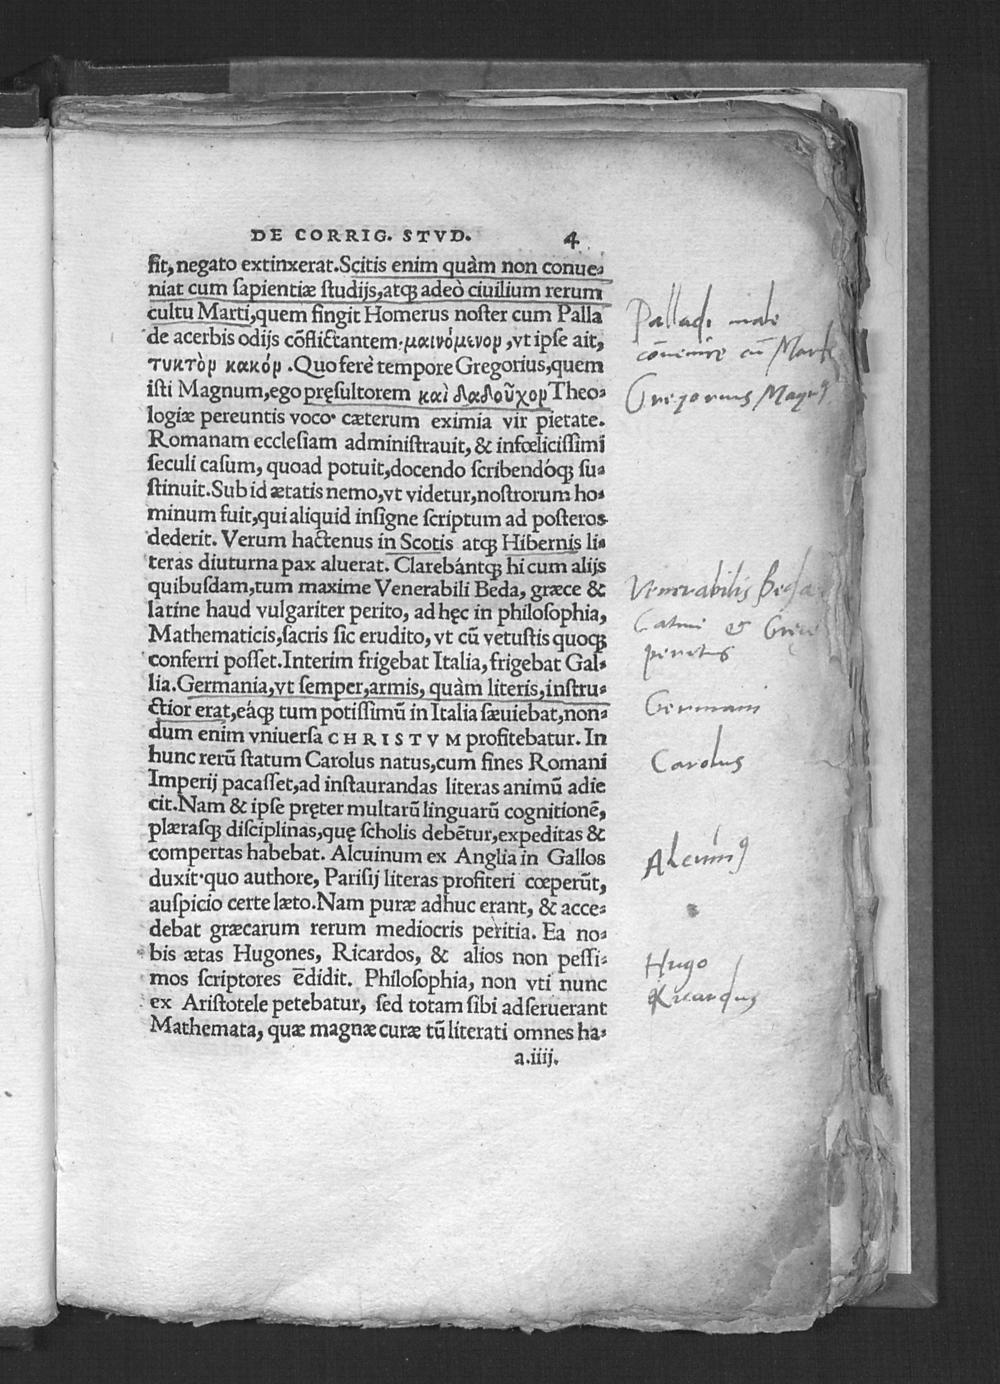 DE CORRIG. STVD. 4
ſit, negato extinxerat. Scitis enim quàm non conue-
niat cum ſapientiæ ſtudijs, atq; adeò ciuilium rerum
cultu Marti, quem fingit Homerus noſter cum Palla
de acerbis odijs cõflictantem· μαινόμενον, vt ipſe ait,
τυκτὸν κακόν. Quo ferè tempore Gregorius, quem
iſti Magnum, ego pręſultorem καὶ δαδοῦχον Theo-
logiæ pereuntis voco· cæterum eximia vir pietate.
Romanam eccleſiam adminiſtrauit, & infœliciſſimi
ſeculi caſum, quoad potuit, docendo ſcribendóq; ſu-
ſtinuit. Sub id ætatis nemo, vt videtur, noſtrorum ho-
minum fuit, qui aliquid inſigne ſcriptum ad poſteros
dederit. Verum hactenus in Scotis atq; Hibernis li-
teras diuturna pax aluerat. Clarebántq; hi cum alijs
quibuſdam, tum maxime Venerabili Beda, græce &
latine haud vulgariter perito, ad hęc in philoſophia,
Mathematicis, ſacris ſic erudito, vt cũ vetuſtis quoq;
conferri poſſet. Interim frigebat Italia, frigebat Gal-
lia. Germania, vt ſemper, armis, quàm literis, inſtru-
ctior erat, eáq; tum potiſſimũ in Italia ſæuiebat, non-
dum enim vniuerſa CHRISTVM profitebatur. In
hunc rerũ ſtatum Carolus natus, cum fines Romani
Imperij pacaſſet, ad inſtaurandas literas animũ adie
cit. Nam & ipſe pręter multarũ linguarũ cognitionẽ,
plæraſq; diſciplinas, quę ſcholis debẽtur, expeditas &
compertas habebat. Alcuinum ex Anglia in Gallos
duxit· quo authore, Pariſij literas profiteri cœperũt,
auſpicio certe læto. Nam puræ adhuc erant, & acce-
debat græcarum rerum mediocris peritia. Ea no-
bis ætas Hugones, Ricardos, & alios non peſſi-
mos ſcriptores ẽdidit. Philoſophia, non vti nunc
ex Ariſtotele petebatur, ſed totam ſibi adſeruerant
Mathemata, quæ magnæ curæ tũ literati omnes ha-
a.iiij.
Palladi male
cõuenire cũ Marte
Gregorius Magnꝰ
Venerabilis Beda
Latine & Grece
peritus
Germani
Carolus
Alcuinꝰ
Hugo
Ricardus